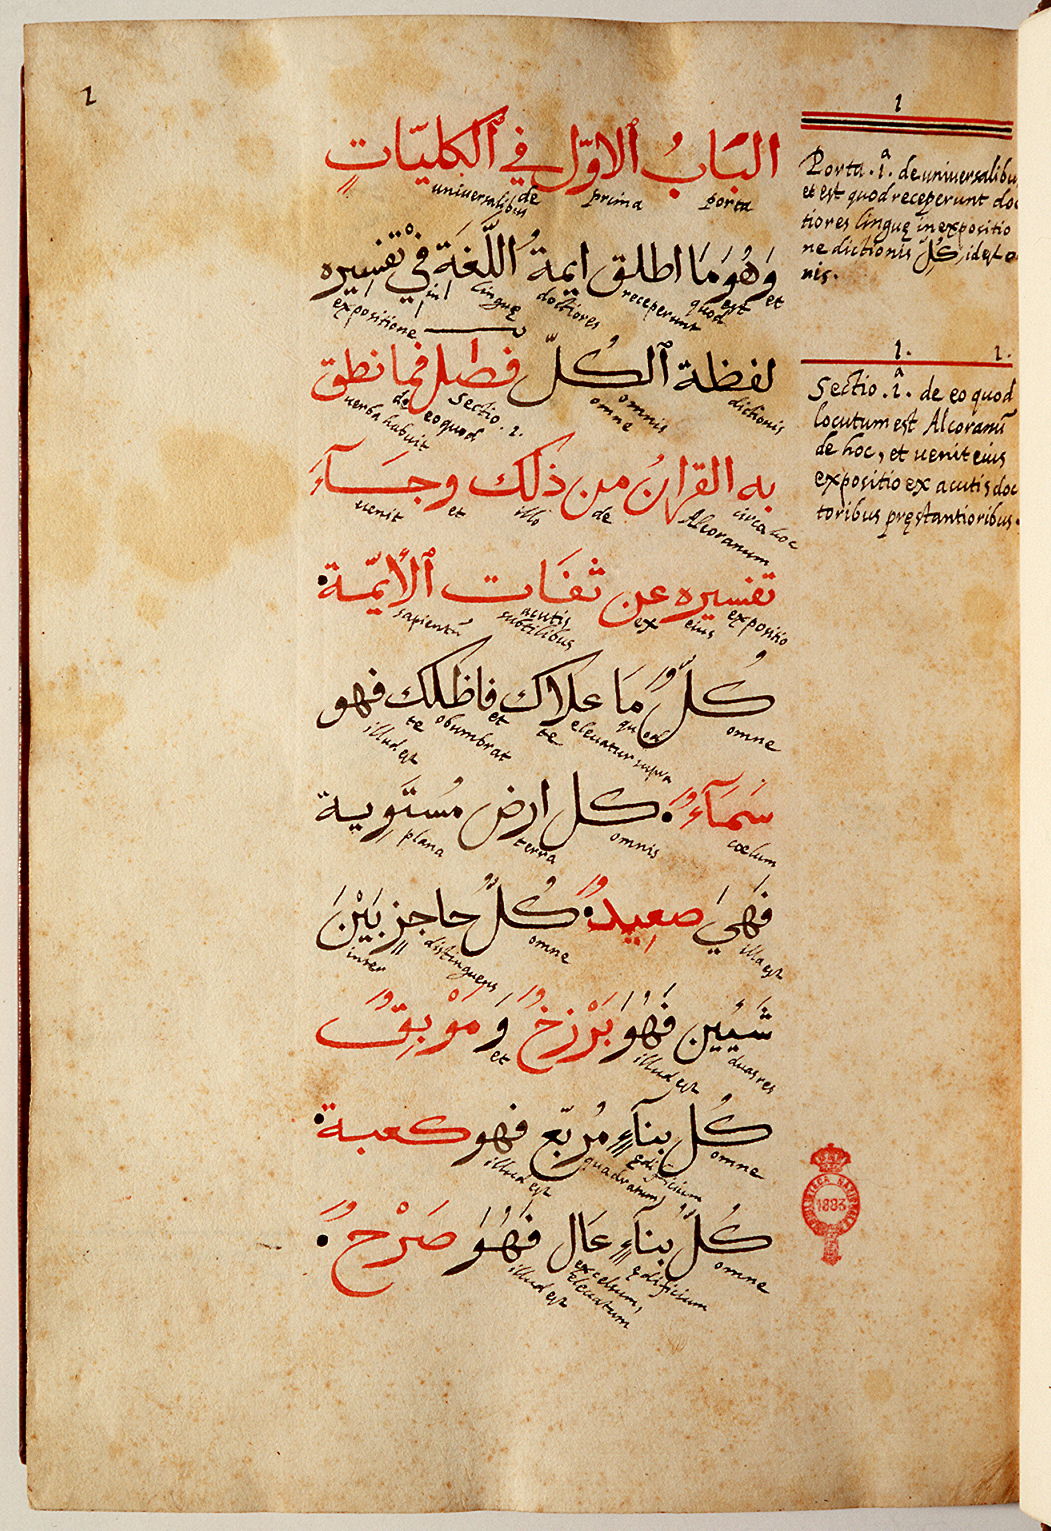 2
1
البَابُ الاوّل في الكليّاتٍ
porta prima de universalibus
وَهُوَ مَا اطلق ايمةُ اللَّغَة فيْ تفسِيره
et est quod receperunt doctiores linguę in expositione
لفظة الكُلّ فصل فما نطق
dictionis omnis omne Sectio .1. de eo quod verba habuit
به القرانُ من ذلك وجَآءَ
circa hoc Alcoranum de illo et uenit
تفسيره عن ثقَات الأيمّة
expositio eius ex acutis subtilibus sapientū
كُلُّ مَا علاك فاظلك فهو
omne quod eleuatur supra te et obumbrat te illud est
سَمَآءٌ كل ارض مُستَوية
cœlum omnis terra plana
فَهيَ صعِيدٌ كُلُّ حاجز بَيْنَ
illa est omne distinguens inter
شَيْين فَهُوَ بَرْزخٌ وَ مَوْبِقٌ
duas res illud est et
كُل بنآءٍ مُربّع فهو كعبة
omne ędificium quadratum, illud est
كُلُّ بنآءٍ عَال فَهُوَ صَرْحٌ
omne ędificium excelsum, eleuatum illud est
Porta .1.ª de uniuersalibu
et est quod receperunt doc
tiores linguę in expositio
ne dictionis كُلّ, id est o
nis.
1. 1.
Sectio .1.ª de eo quod
locutum est Alcoranū
de hoc, et uenit eius
expositio ex acutis doc
toribus pręstantioribus.
BIBLIOTECA NAZIONALE
1883